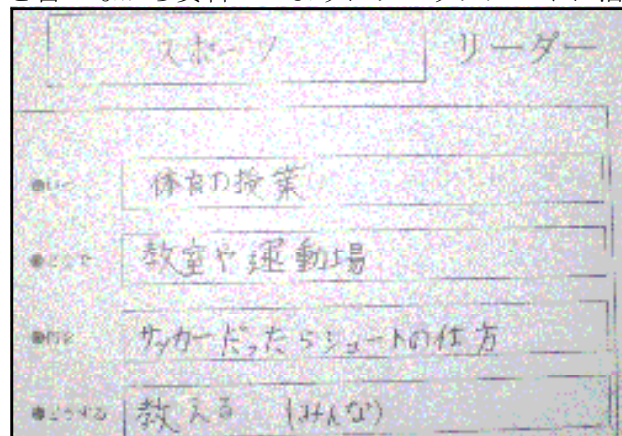 スポーツ リーダー
●いつ 体育の授業
●どこで 教室や運動場
●何を サッカーだったらシュートの仕方
●どうする 教える (みんな)